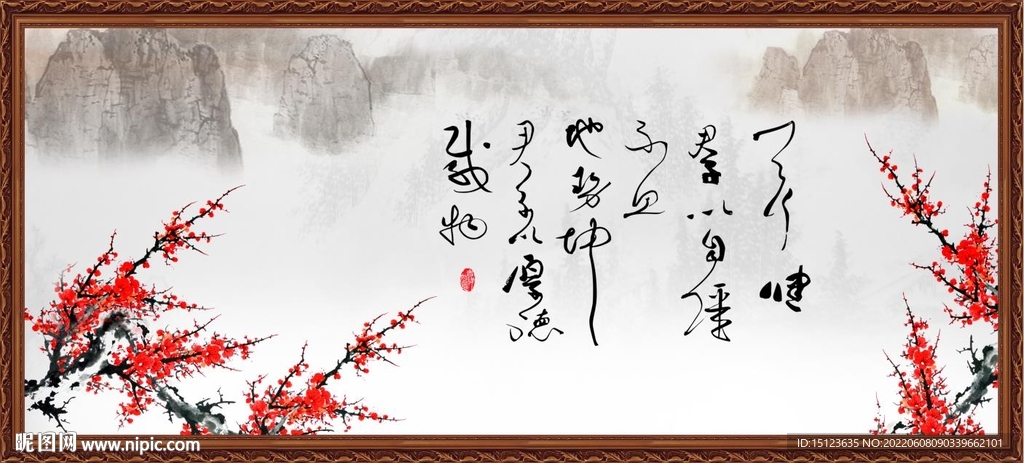 天行健
君子以自强
不息
地势坤
君子以厚德
载物
昵图网 www.nipic.com
ID:15123635 NO:20220608090339662101